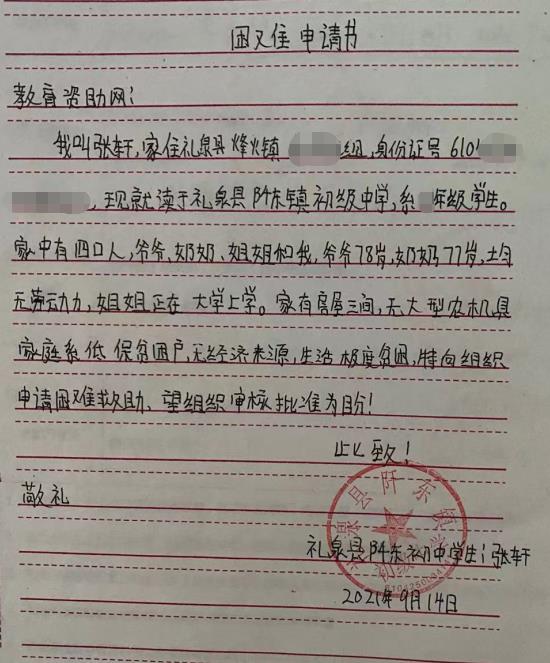 困难 申请书
教育资助网:
我叫张轩,家住礼泉县烽火镇 组,身份证号6101
,现就读于礼泉县阡东镇初级中学,系 年级学生。
家中有四口人,爷爷、奶奶、姐姐和我,爷爷78岁,奶奶77岁,均
无劳动力,姐姐正在大学上学。家有房屋三间,无大型农机具
家庭系低保贫困户,无经济来源,生活极度贫困,特向组织
申请困难救助、望组织审核批准为目分!
此致!
敬礼
泉县阡东镇
初级中学
礼泉县阡东初中学生:张轩
2021年9月14日